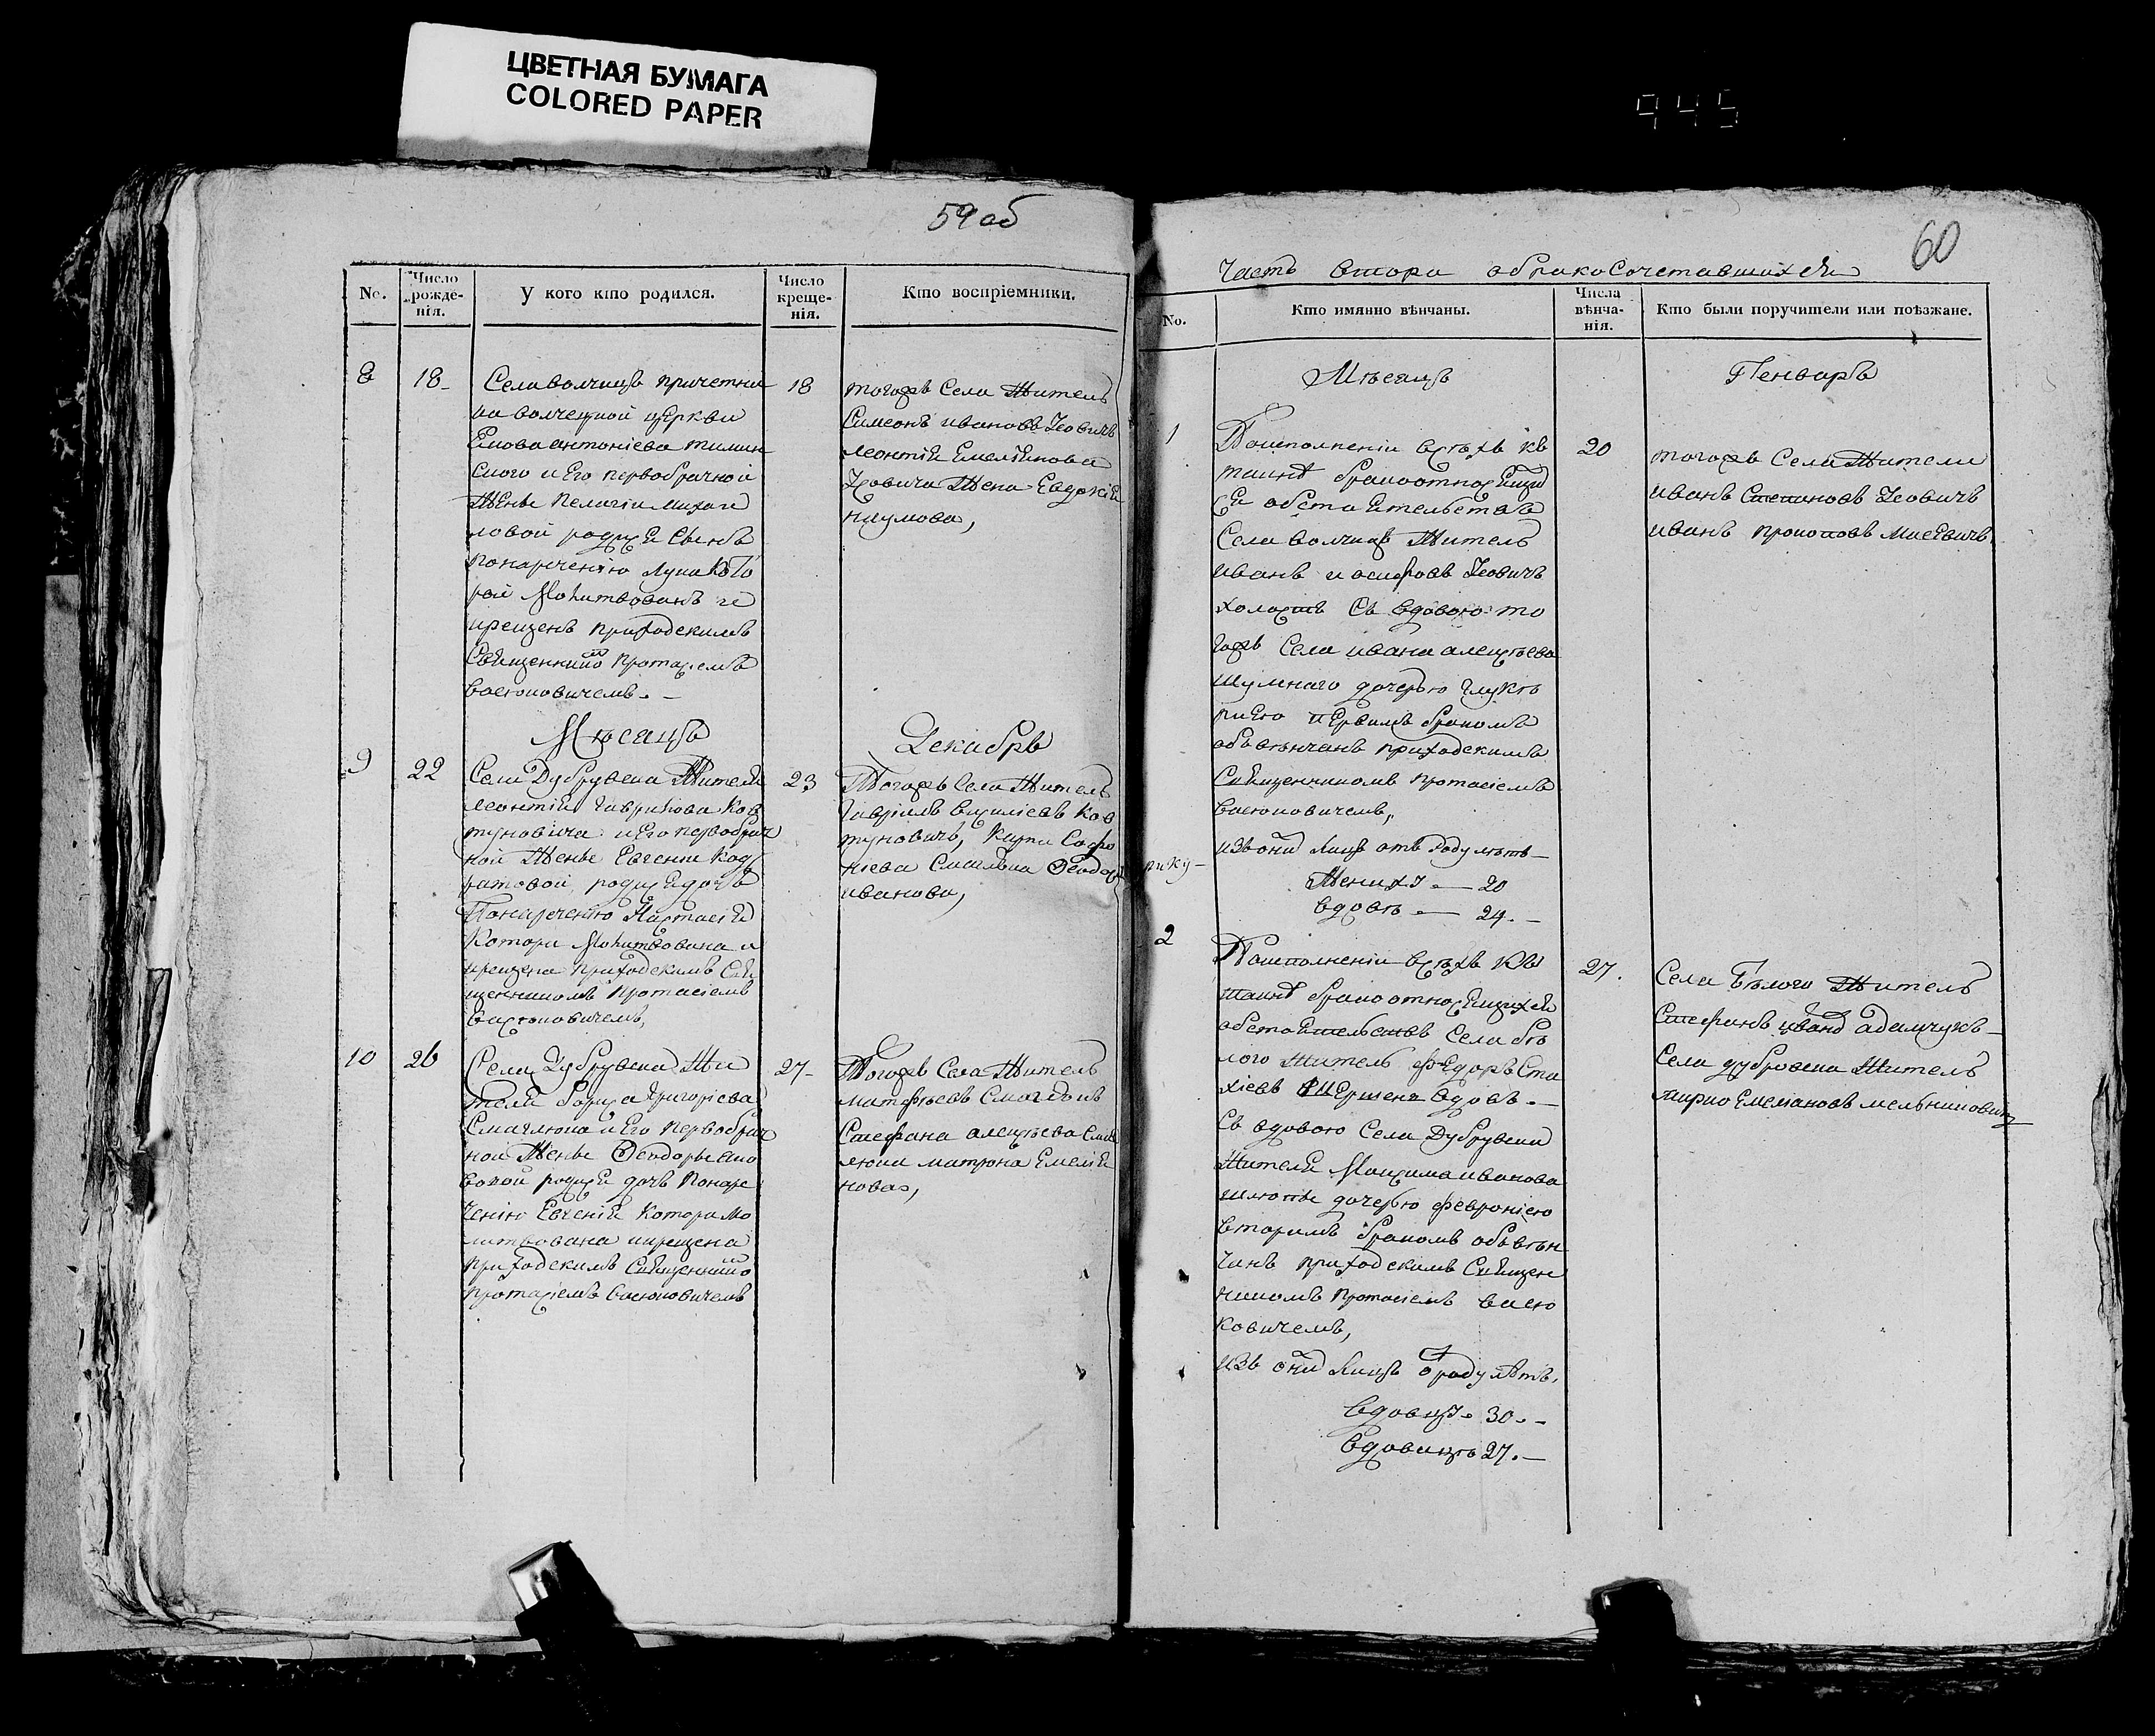 ЦВЕТНАЯ БУМАГА
COLORED PAPER
945
59 об
No.
Число рожде-нія.
У кого кто родился.
Число креще-нія.
Кто воспріемники.
8
18
Села Волчицъ причетни
ка волчецкой церкви
антоніева
ского и Его первобрачной
Женѣ Пелагіи Михаи
ловой родися Сынъ
понареченію Лука Кото
рой Молитвованъ и
крещенъ приходскимъ
Священнико Протасіемъ
Васюковичемъ
18
тогожъ Села Житель
Симеонъ Ивановъ
Леонтія Емелianова
Жена Евдокія
Наумова,
Мѣсяцъ
Декабрь
9
22
Села Дубрувска Жителя
Леонтія Гаврилова Ков
туновича и Его первобрач
ной Женѣ Евгеніи Код
ратовой, родися дочь
Понареченію Настасія
Котора Молитвована и
крещена приходскимъ Свя
щенникомъ Протасіемъ
Васюковичемъ,
23
Тогожъ Села Житель
Гавріилъ Василіевъ Ков
туновичъ, Карпа Софро
ніева Феодора
Иванова,
10
26
Села Дубрувска Жи
теля Бориса Григоріева
Смаглюка и Его первобрач
ной Женѣ Феодоры Яко
вовой родися дочь Понаре
ченію Евгенія Котора Мо
литвована икрещена
приходскимъ Священнико
Протасіемъ Васюковичемъ
27
Тогожъ Села Житель
Матфѣевъ
Стефана Алексѣева Смаг
люка Матрона Емелія
нова,
60
Часть втора обракоСочетавшихся
No.
Кто имянно вѣнчаны.
Числа вѣнча-нія.
Кто были поручители или поѣзжане.
Мѣсяцъ
Генварь
1
Поисполненіи всѣхъ къ
таинѣ бракоотносящи
ся обстоятельствъ
Села Волчицъ Житель
Иванъ Иосифовъ
холостъ Съ вдовою то
гожъ Села Ивана Алексѣева
Шумнаго дочерью Глике
ріею первимъ бракомъ
обвѣнчанъ приходскимъ
Священникомъ Протасіемъ
Васюковичемъ,
изъ они лицъ отъ роду лѣтъ
Жениху 20
вдовѣ 24
20
тогожъ Села Жители
Иванъ Степановъ
Иванъ Прокоповъ
2
Поисполненіи всѣхъ къ
таинѣ бракоотносящихся
обстоятельствъ Села Бѣ
лого Житель Федоръ Ста
хіевъ Шершенъ вдовъ
Съ вдовою Села Дубрувска
Жителя Максима Иванова
дочерью Февроніею
вторимъ бракомъ обвѣн
чанъ приходскимъ Священ
никомъ Протасіемъ Васю
ковичемъ,
изъ они лицъ ѿ роду лѣтъ,
вдовцу 30
вдовицѣ 27
27
Села Бѣлого Житель
Стефанъ Адамчукъ
Села Дубровска Житель
Емеліановъ Мельниковичъ